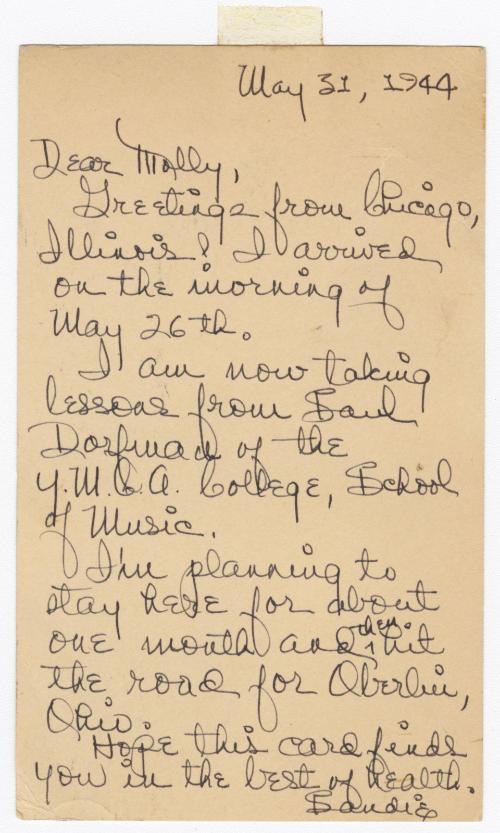 May 31, 1944
Dear Molly,
Greetings from Chicago,
Illinois! I arrived
on the morning of
May 26th.
I am now taking
lessons from Saul
Dorfman of the
Y.M.C.A. College, School
of Music.
I'm planning to
stay here for about
one month and then hit
the road for Oberlin,
Ohio.
Hope this card finds
you in the best of health.
Sandie